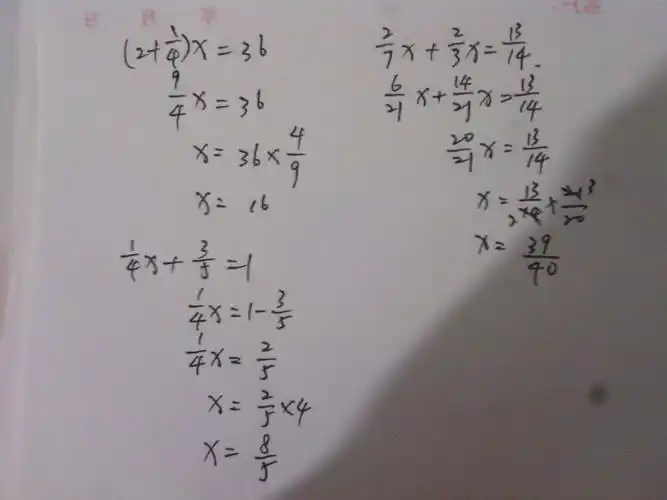 (2+1/4)x=36
9/4 x=36
x=36×4/9
x=16
1/4 x+3/5=1
1/4 x=1-3/5
1/4 x=2/5
x=2/5×4
x=8/5
2/7 x+2/3 x=13/14
6/21 x+14/21 x=13/14
20/21 x=13/14
x=13/14×21/20 2 3
x=39/40